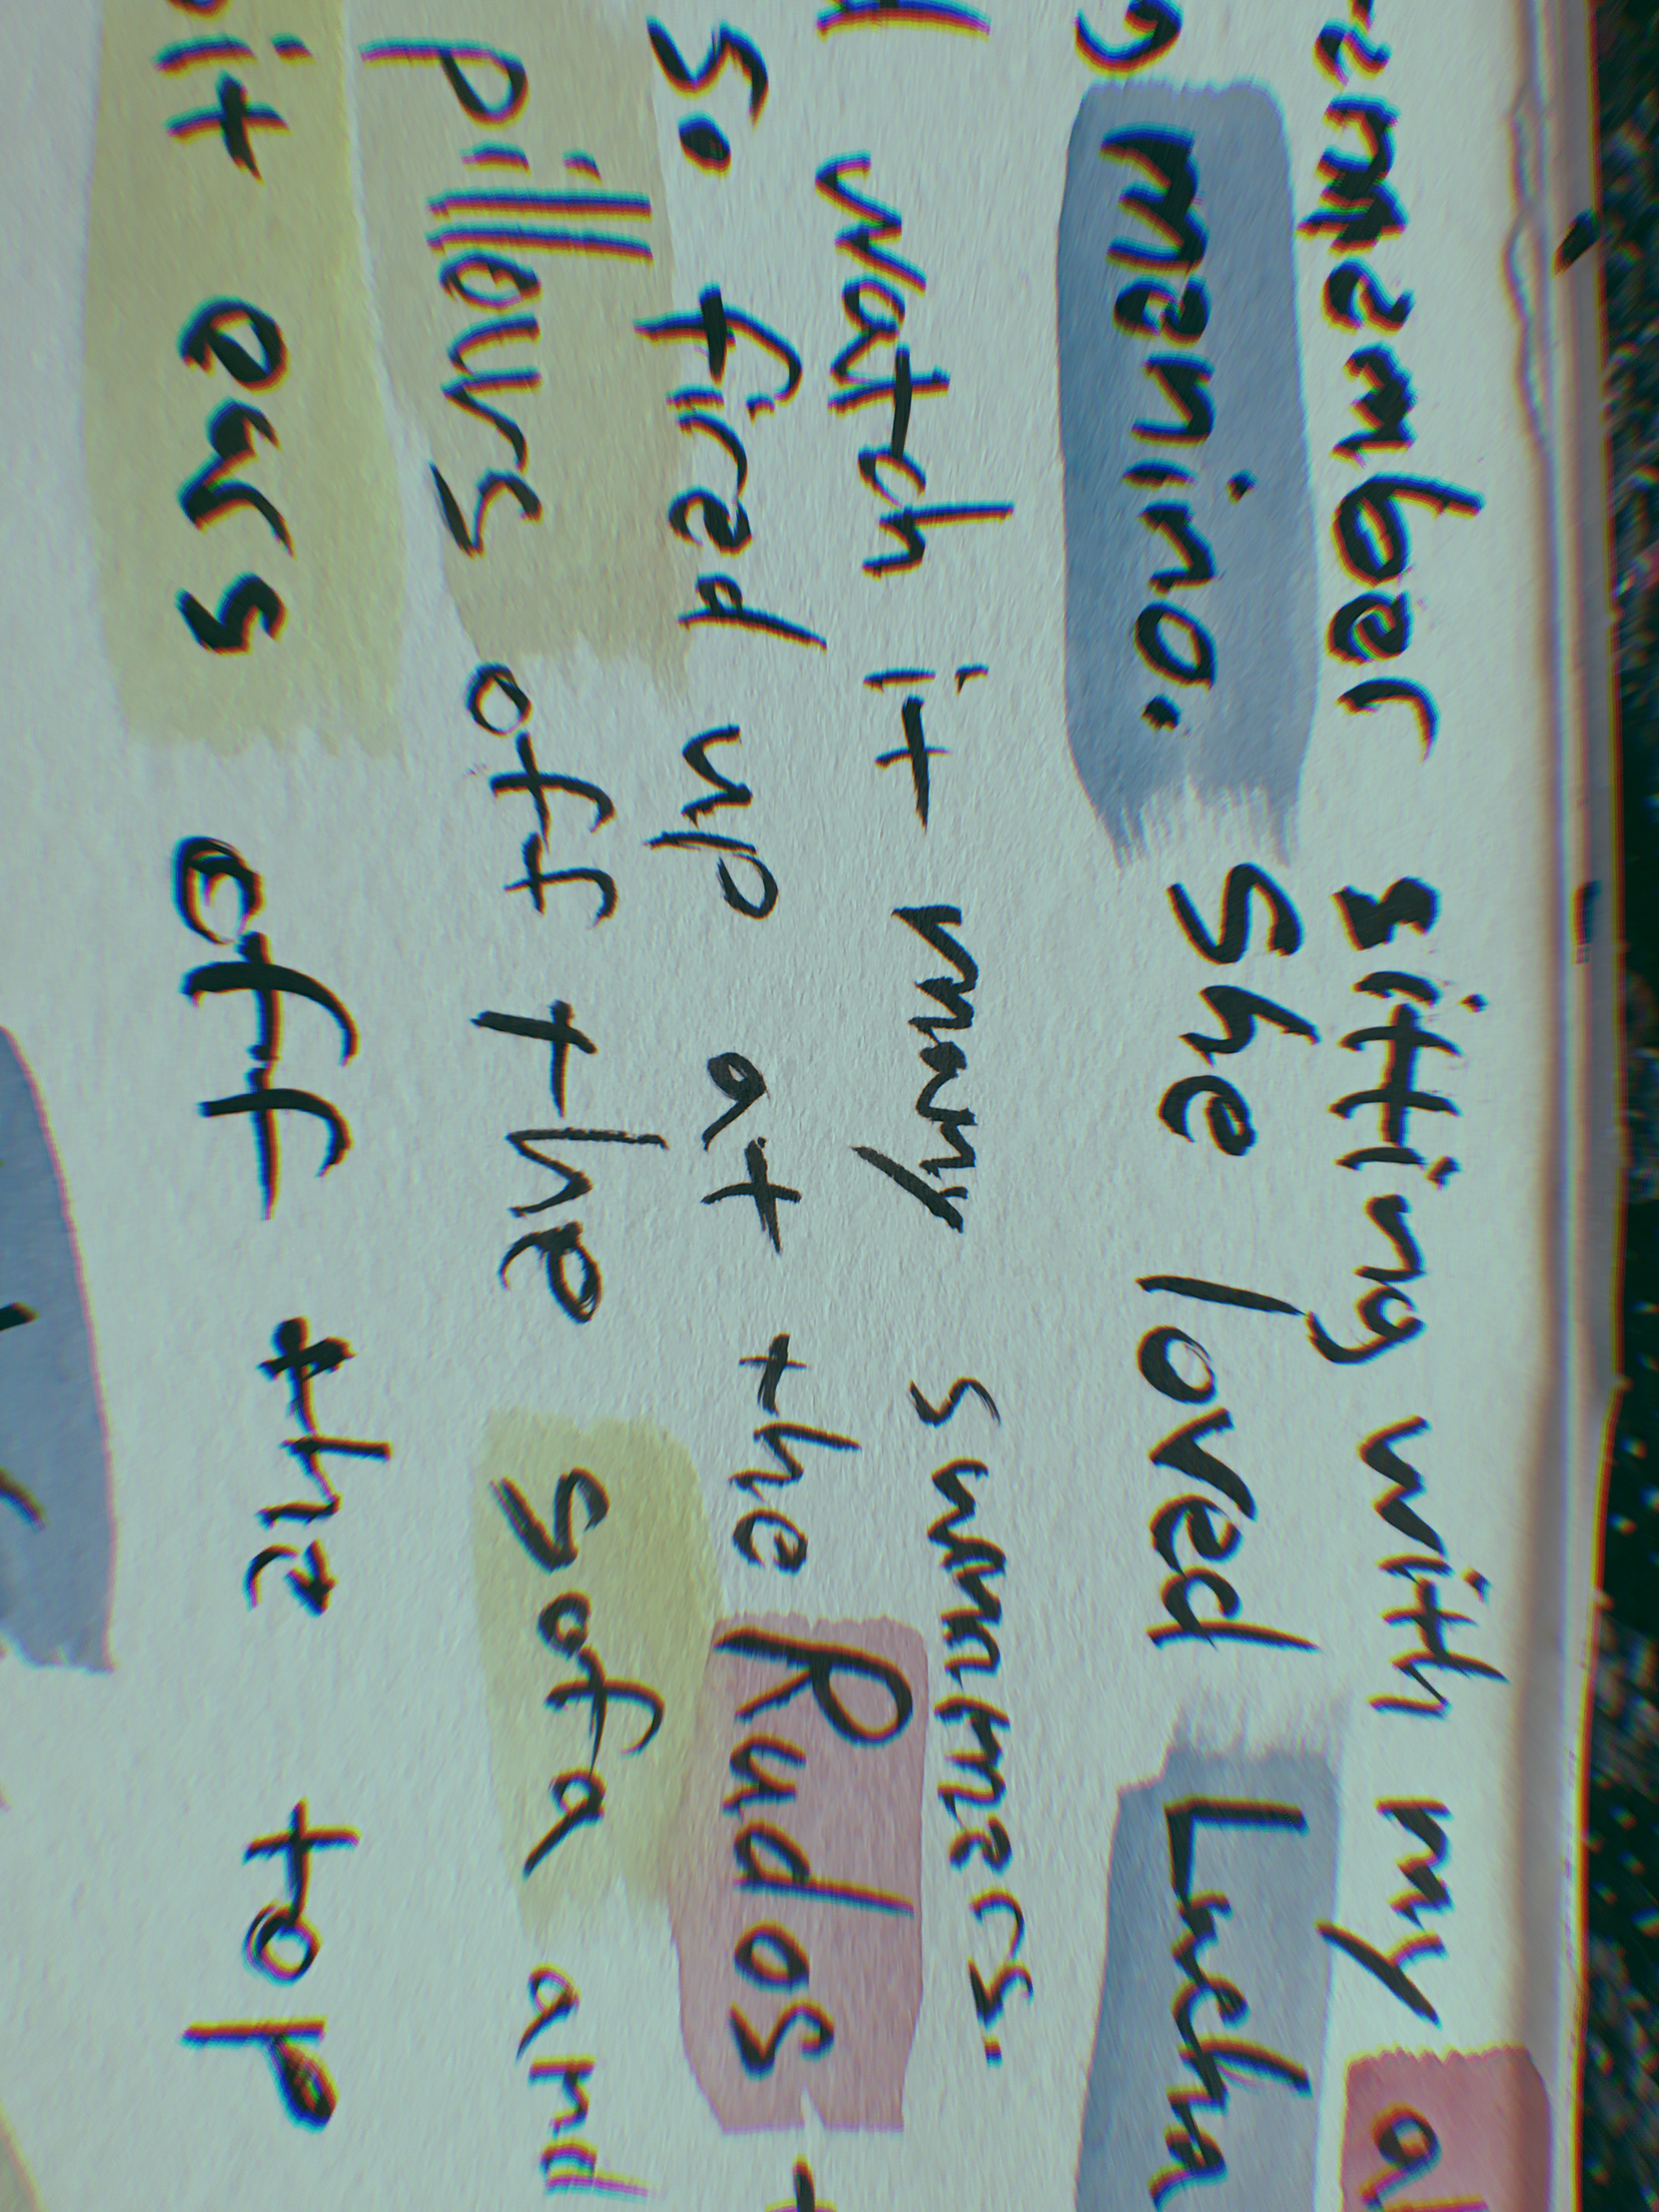 emember sitting with my
manino. She loved Lucha
watch it many summers.
so fired up at the Rudos
pillows off the sofa and
it off the top